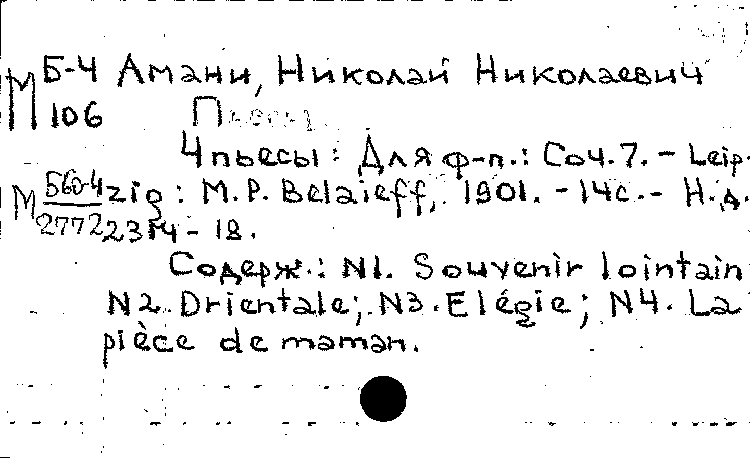 М Б-4 Амани, Николай Николаевич
106 Пьесы.
4 пьесы: Для ф-п.: Соч. 7. – Leip-
М Б60-4/2772 zig: M. P. Belaieff, 1901. – 14с. – Н.д.
2314 – 18.
Содерж.: N1. Souvenir lointain
N2. Orientale; N3. Elégie; N4. La
pièce de maman.